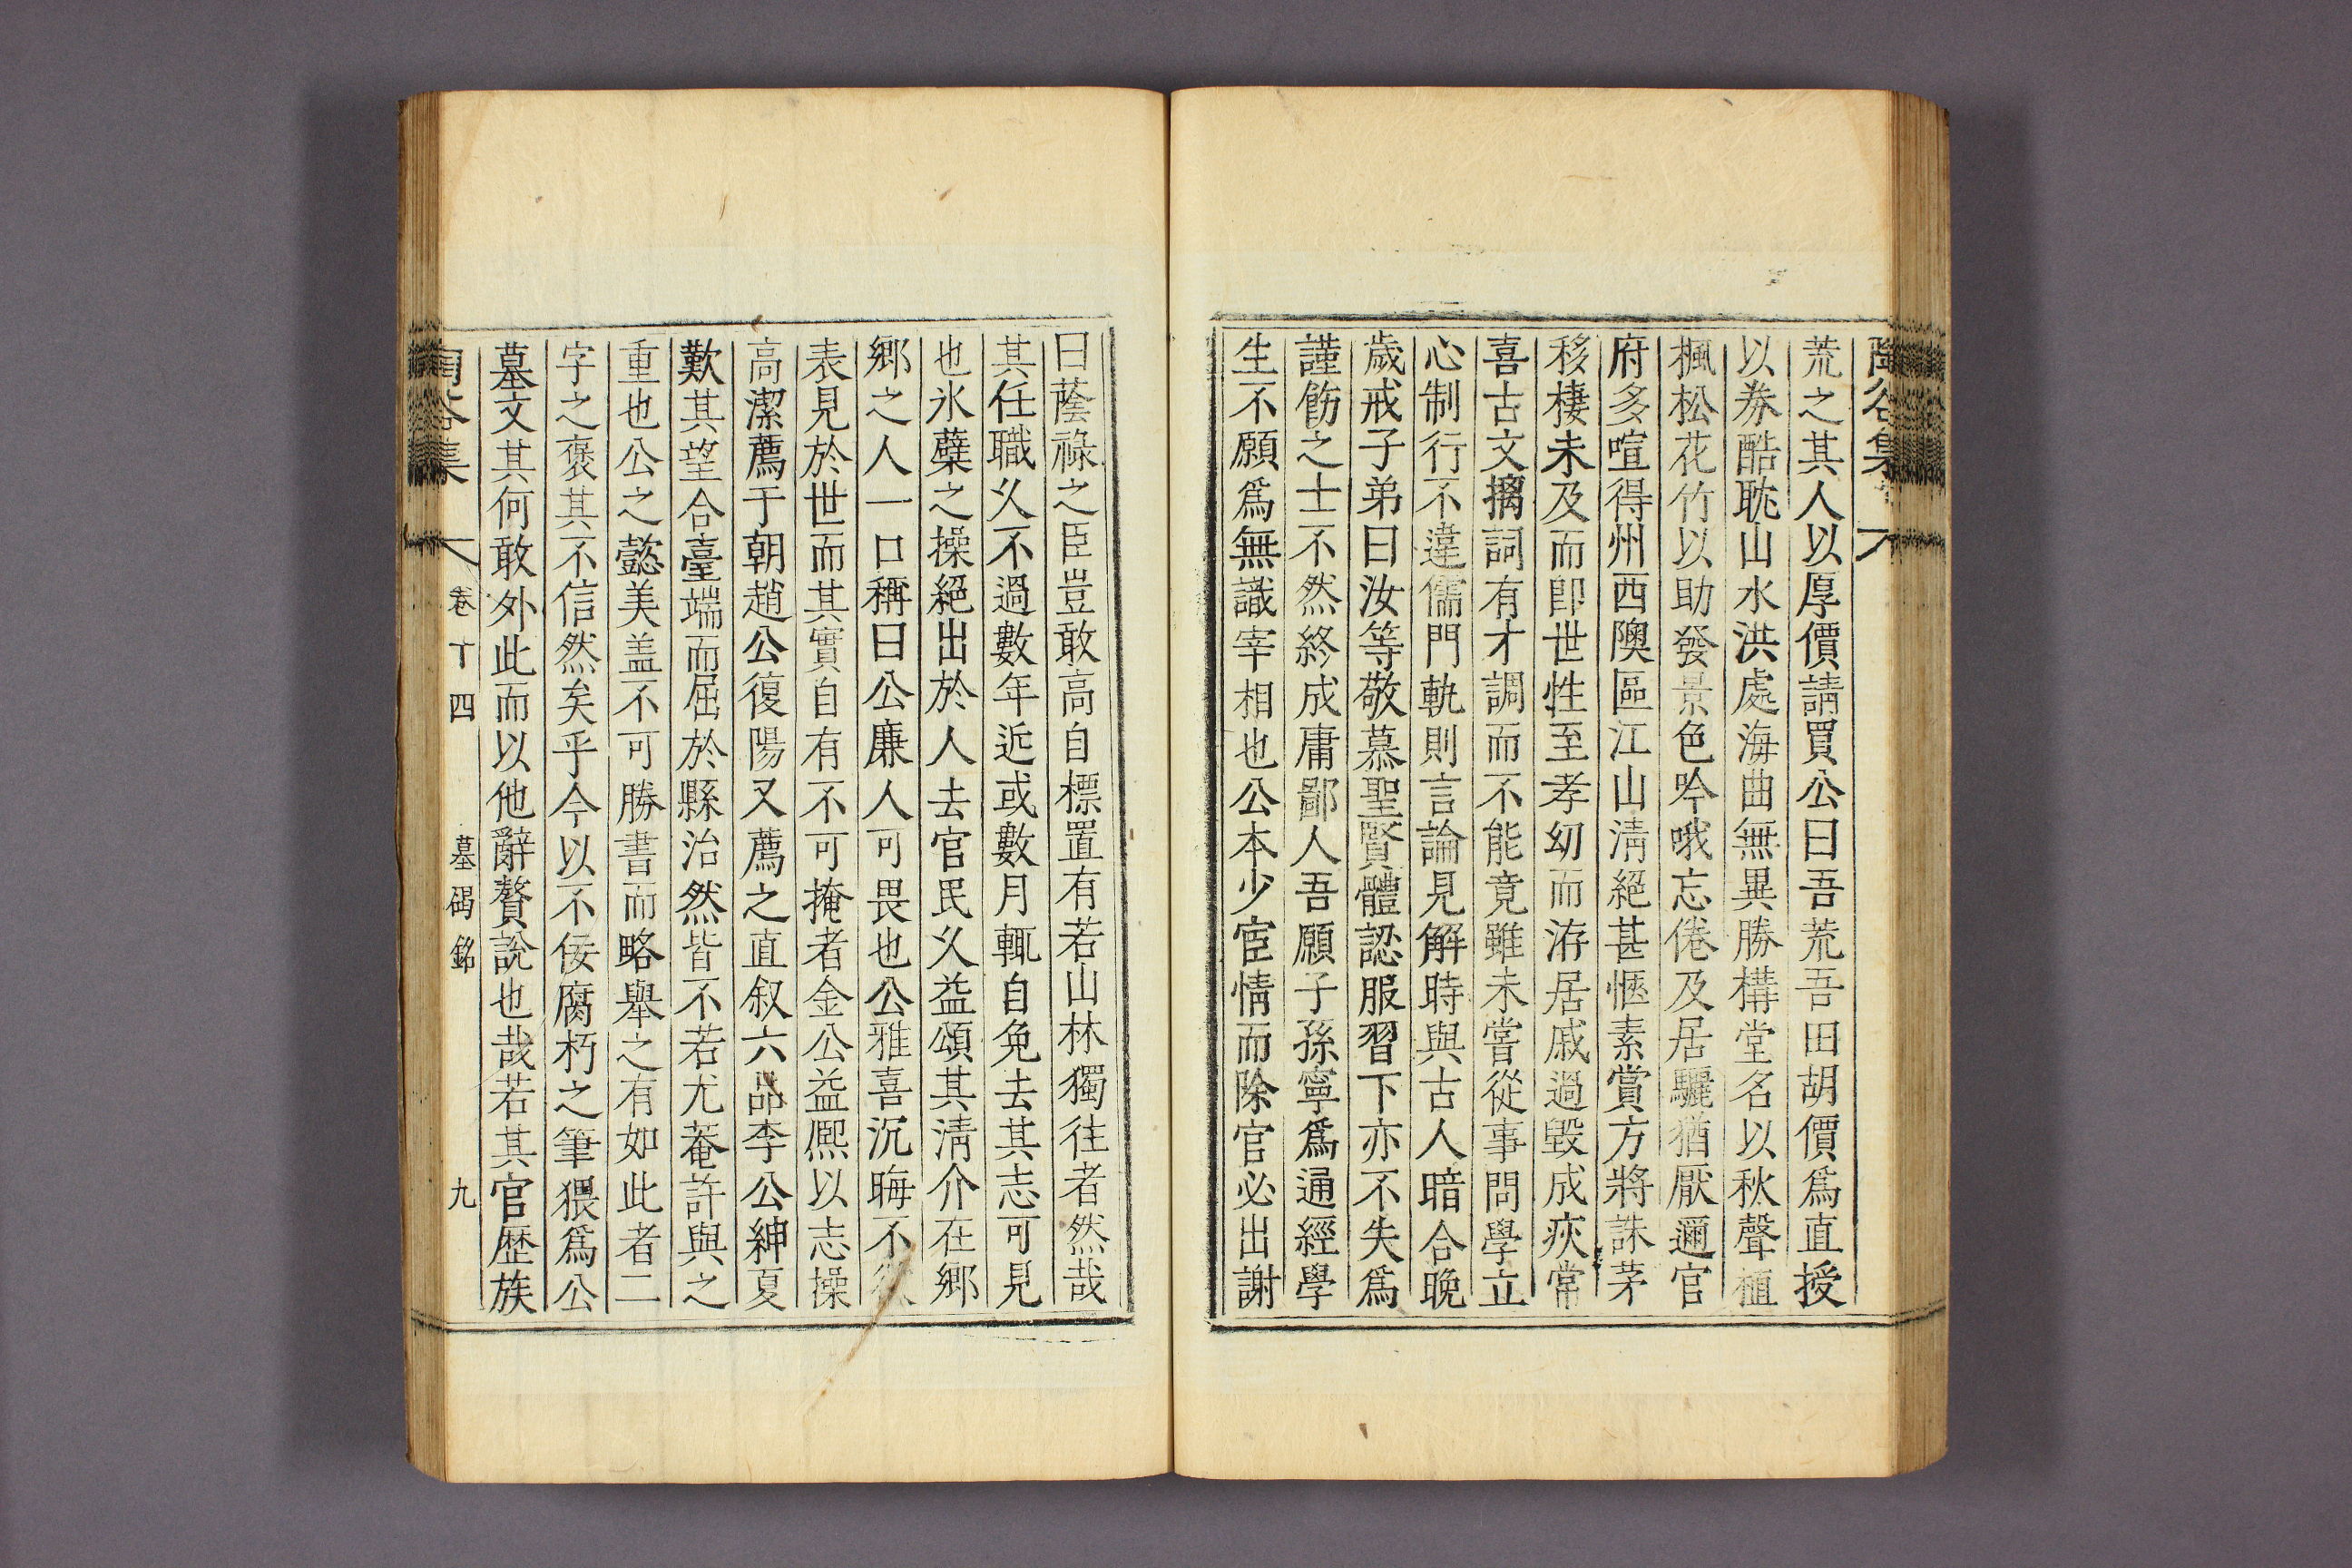 陶谷集
荒之其人以厚價請買公曰吾荒吾田胡價爲直授
以券酷耽山水洪處海曲無異勝構堂名以秋聲植
楓松花竹以助發景色吟哦忘倦及居驪猶厭邇官
府多喧得州西隩區江山淸絕甚愜素賞方將誅茅
移棲未及而卽世性至孝幼而洊居戚過毀成疾常
喜古文摛詞有才調而不能竟雖未嘗從事問學立
心制行不違儒門軌則言論見解時與古人暗合晚
歲戒子弟曰汝等敬慕聖賢體認服習下亦不失爲
謹飭之士不然終成庸鄙人吾願子孫寧爲通經學
生不願爲無識宰相也公本少宦情而除官必出謝
曰蔭祿之臣豈敢高自標置有若山林獨往者然哉
其任職久不過數年近或數月輒自免去其志可見
也氷蘗之操絕出於人去官民久益頌其淸介在鄉
鄉之人一口稱曰公廉人可畏也公雅喜沉晦不
表見於世而其實自有不可掩者金公益熙以志操
高潔薦于朝趙公復陽又薦之直叙六品李公紳夏
歎其望合臺端而屈於縣治然皆不若尤菴許與之
重也公之懿美盖不可勝書而略舉之有如此者二
字之褒其不信然矣乎今以不佞腐朽之筆猥爲公
墓文其何敢外此而以他辭贅說也哉若其官歷族
陶谷集 卷十四 墓碣銘 九